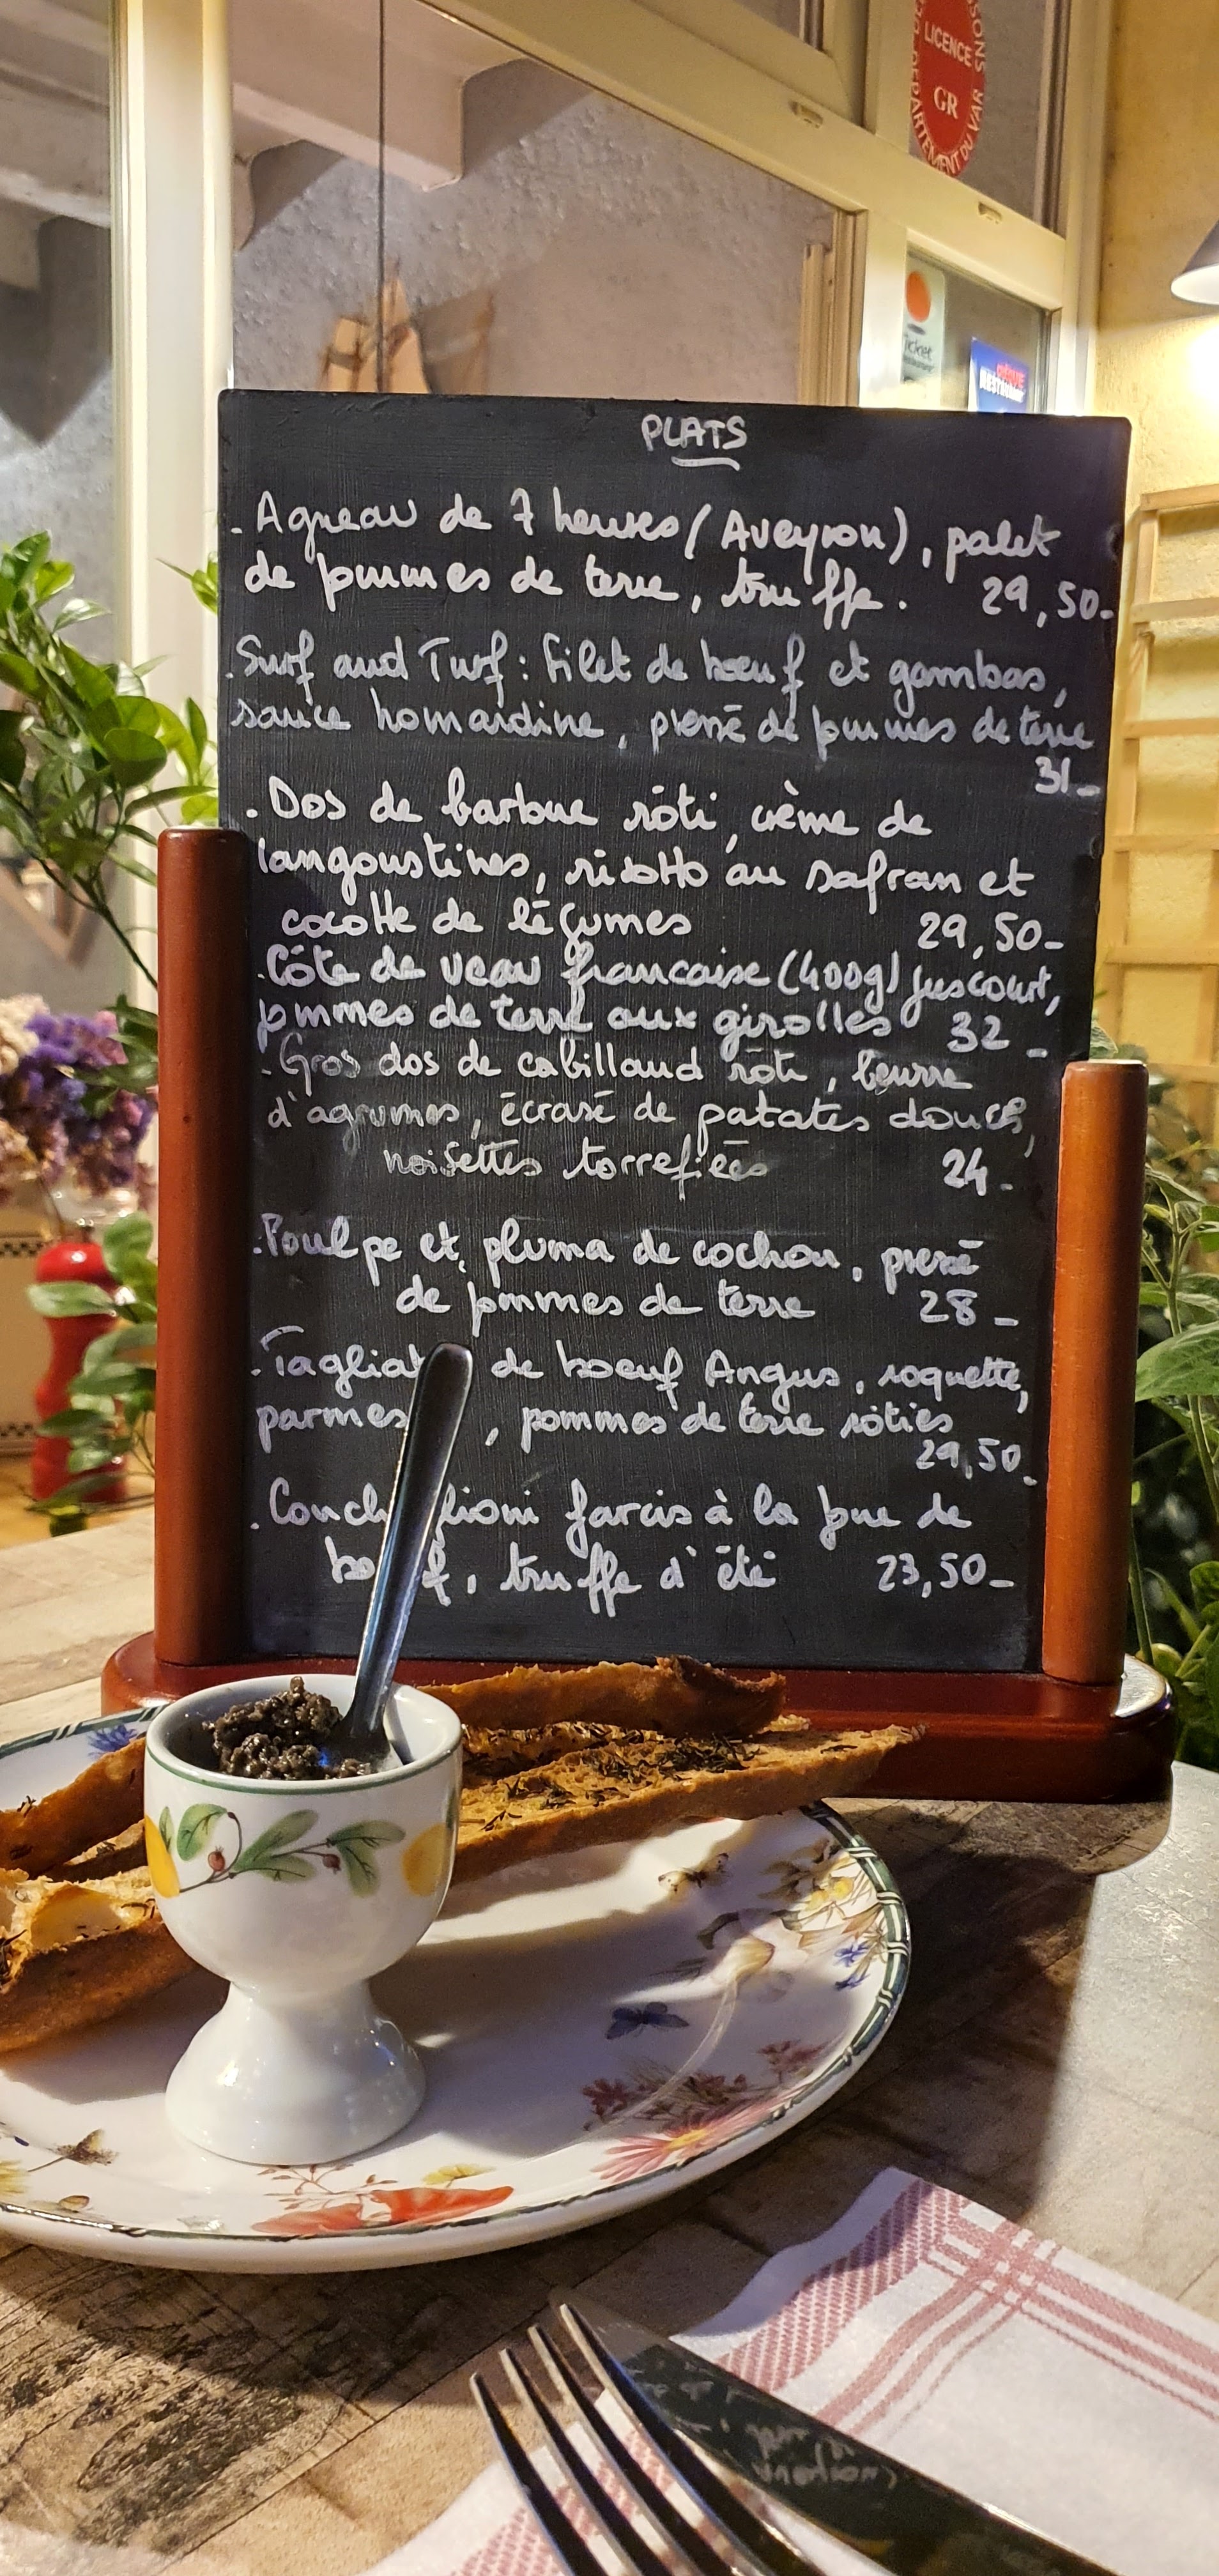 LICENCE
GR
DEPARTEMENT DU VAR
Ticket
PLATS
- Agneau de 7 heures (Aveyron), palet
de pommes de terre, truffe. 29,50-
. Surf and Turf : filet de bœuf et gambas,
sauce homardine, pressé de pommes de terre
31-
. Dos de barbue rôti, crème de
langoustines, risotto au safran et
cocotte de légumes 29,50-
. Côte de veau francaise (400g) jus court,
pommes de terre aux girolles 32-
- Gros dos de cabillaud rôti, beurre
d'agrumes, écrasé de patates douces,
noisettes torrefiées 24-
. Poulpe et pluma de cochon, pressé
de pommes de terre 28-
. Tagliat de boeuf Angus, roquette,
parmes , pommes de terre rôties
29,50-
. Conch glioni farcis à la joue de
bo f, truffe d'été 23,50-